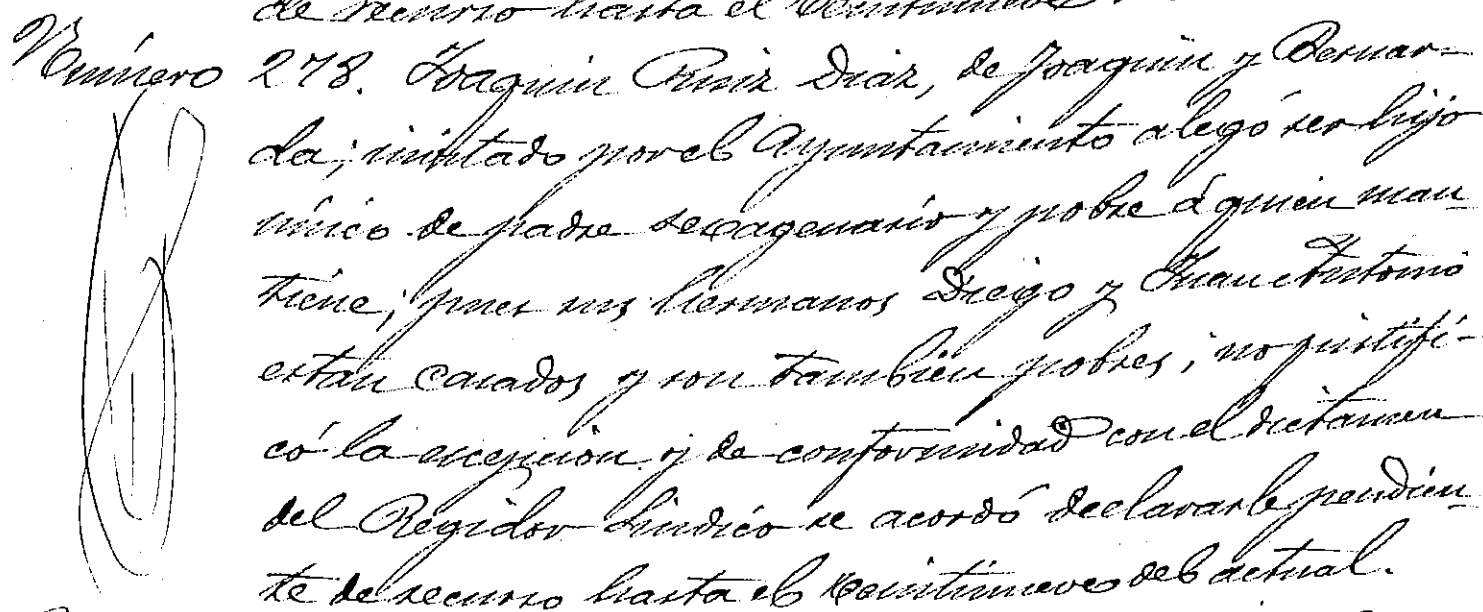 de recurso hasta el veintinueve
Número 278. Joaquin Ruiz Diaz, de Joaquin y Bernar-
da; invitado por el Ayuntamiento alegó ser hijo
único de padre sexagenario y pobre á quien man-
tiene; pues sus hermanos Diego y Juan Antonio
estan casados y son tambien pobres; no justifi-
có la excepcion y de conformidad con el dictamen
del Regidor Sindico se acordó declararle pendien-
te de recurso hasta el veintinueve del actual.